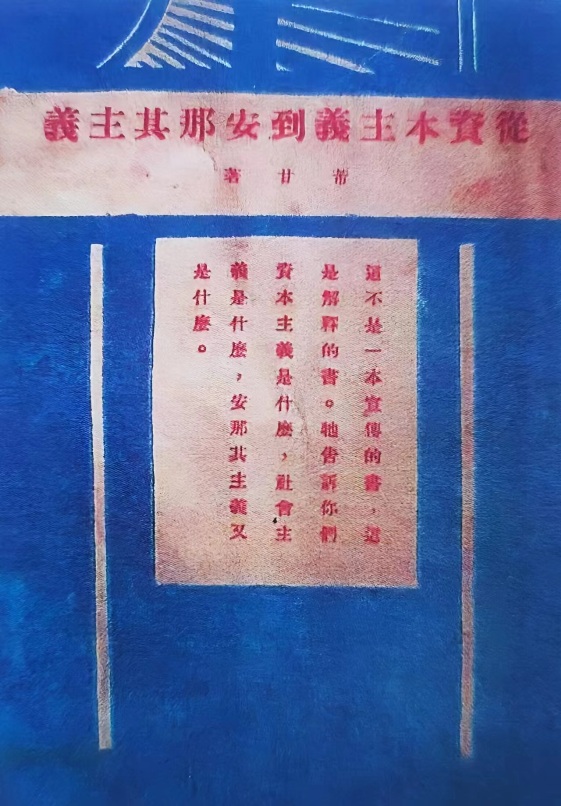 從資本主義到安那其主義
芾甘著
這不是一本宣傳的書，這
是解釋的書。牠告訴你們
資本主義是什麼，社會主
義是什麼，安那其主義又
是什麼。